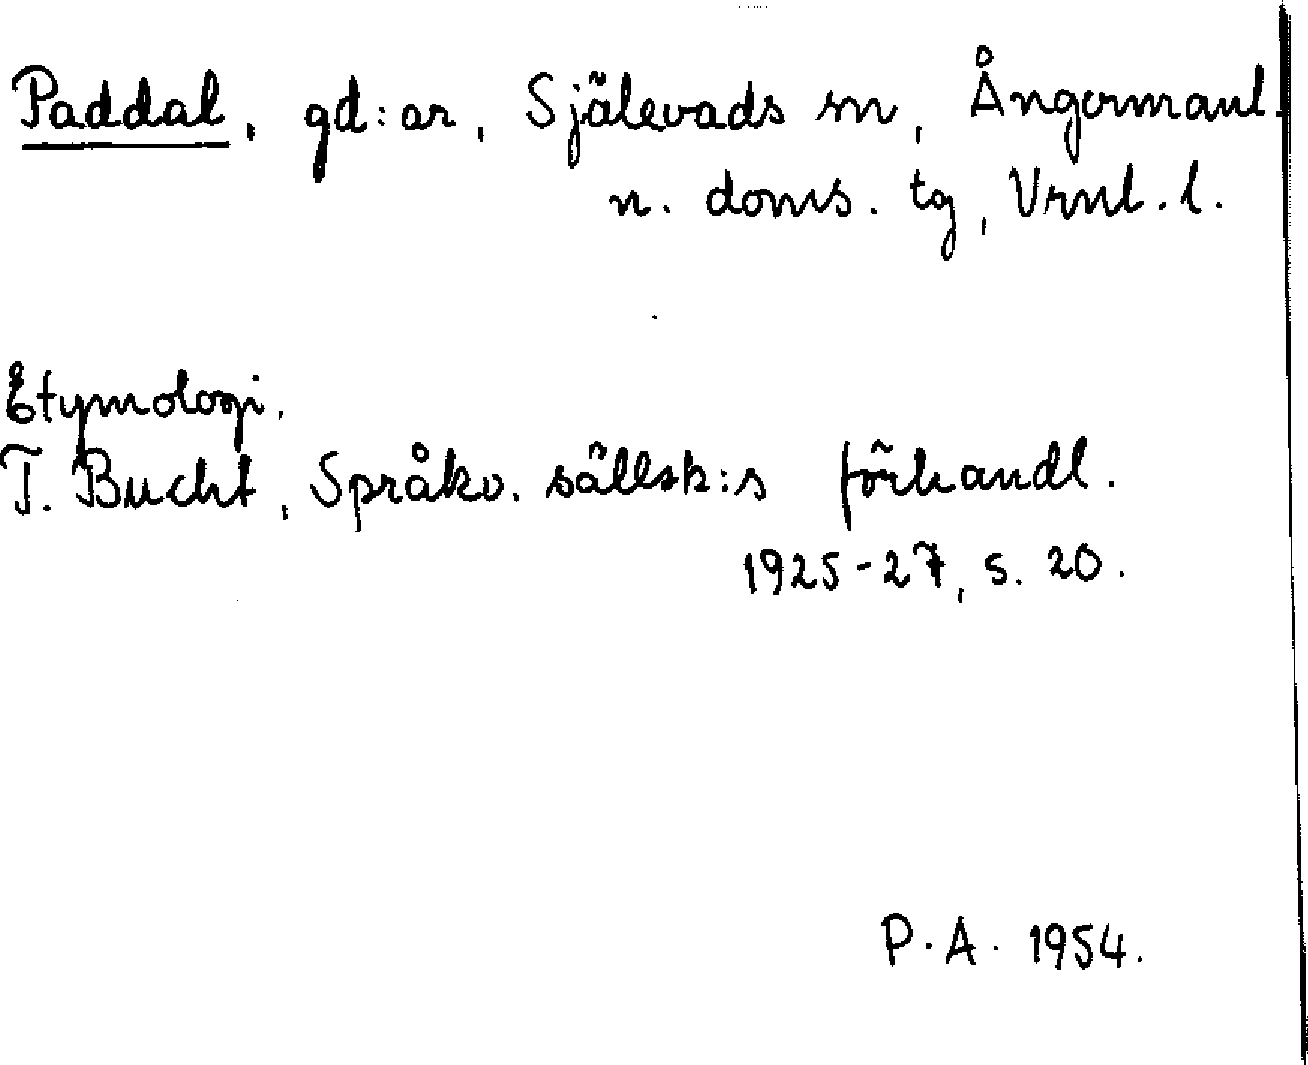 Paddal, gd:ar, Själevads sn, Ångermanl.
n. doms. tg, Vrnl. l.
Etymologi.
T. Bucht, Språkv. sällsk:s förhandl.
1925-27, s. 20.
P.A. 1954.